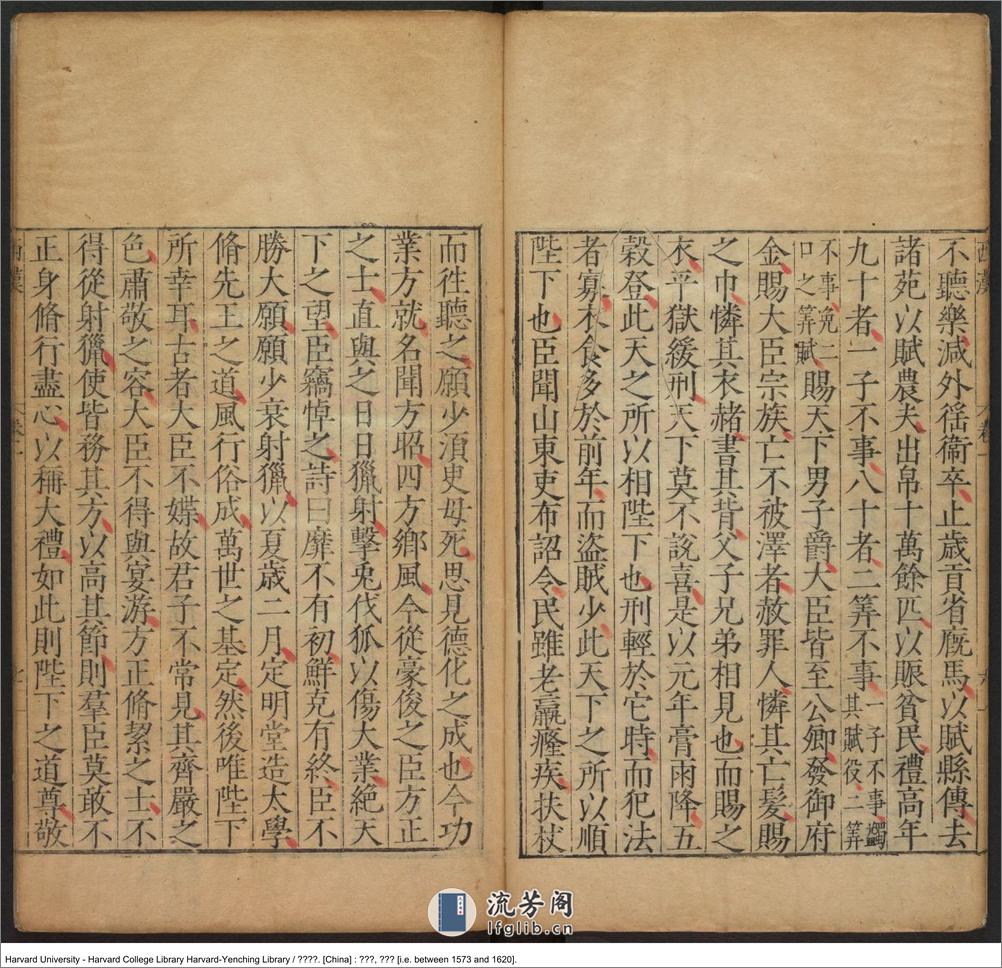 西漢
卷一
六
不聽樂減外徭衛卒止歲貢省廐馬以賦縣傳去
諸苑以賦農夫出帛十萬餘匹以賑貧民禮高年
九十者一子不事八十者二筭不事一子不事蠲其賦役二筭
不事免二口之筭賦賜天下男子爵大臣皆至公卿發御府
金賜大臣宗族亡不被澤者赦罪人憐其亡髮賜
之巾憐其衣赭書其背父子兄弟相見也而賜之
衣平獄緩刑天下莫不說喜是以元年膏雨降五
穀登此天之所以相陛下也刑輕於它時而犯法
者寡衣食多於前年而盜賊少此天下之所以順
陛下也臣聞山東吏布詔令民雖老羸癃疾扶杖
而往聽之願少湏臾毋死思見德化之成也今功
業方就名聞方昭四方鄉風今從豪俊之臣方正
之士直與之日日獵射擊兔伐狐以傷大業絕天
下之望臣竊悼之詩曰靡不有初鮮克有終臣不
勝大願願少衰射獵以夏歲二月定明堂造太學
脩先王之道風行俗成萬世之基定然後唯陛下
所幸耳古者大臣不媟故君子不常見其齊嚴之
色肅敬之容大臣不得與宴游方正脩絜之士不
得從射獵使皆務其方以高其節則羣臣莫敢不
正身脩行盡心以稱大禮如此則陛下之道尊敬
西漢
卷一
七
流芳阁
lfglib.cn
Harvard University - Harvard College Library Harvard-Yenching Library / ????. [China] : ???, ??? [i.e. between 1573 and 1620].